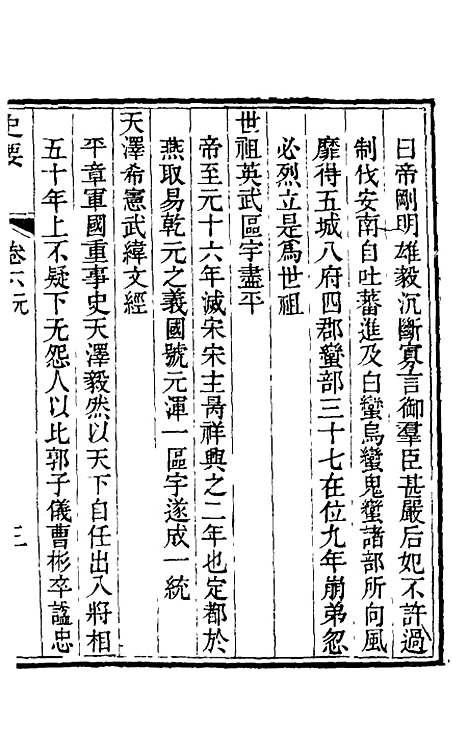 曰帝剛明雄毅沉斷寡言御羣臣甚嚴后妃不許過
制伐安南自吐蕃進及白蠻烏蠻鬼蠻諸部所向風
靡得五城八府四郡蠻部三十七在位九年崩弟忽
必烈立是爲世祖
世祖英武區宇盡平
帝至元十六年滅宋宋主昺祥興之二年也定都於
燕取易乾元之義國號元渾一區宇遂成一統
天澤希憲武緯文經
平章軍國重事史天澤毅然以天下自任出入將相
五十年上不疑下无怨人以比郭子儀曹彬卒謚忠
史要
卷六元
三